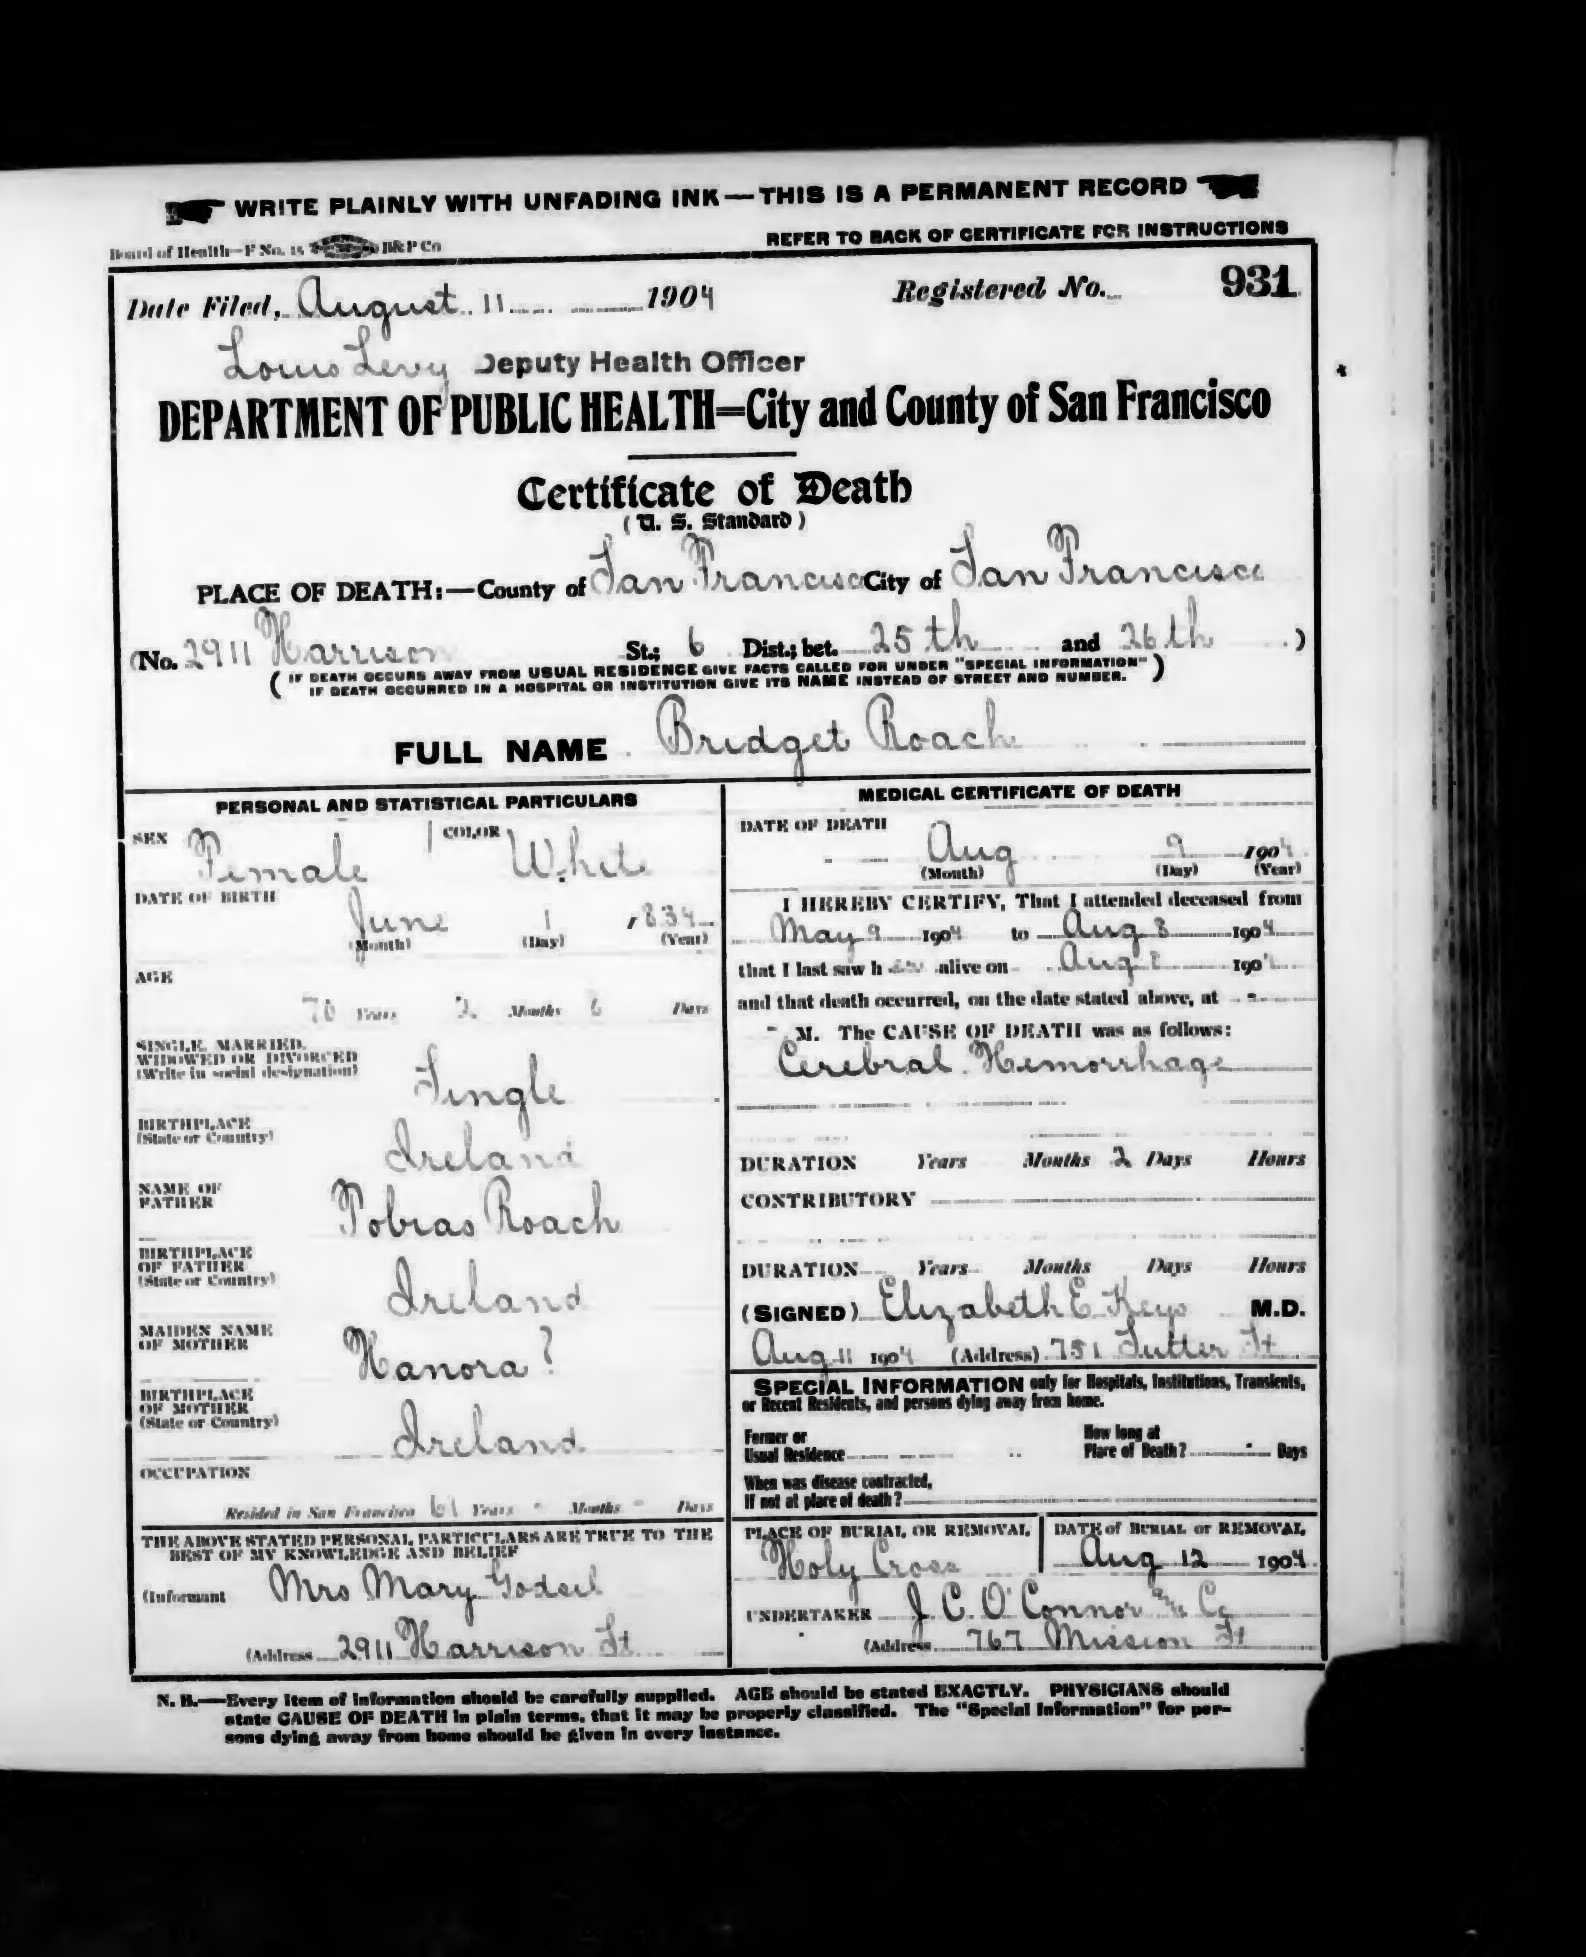 WRITE PLAINLY WITH UNFADING INK — THIS IS A PERMANENT RECORD
Board of Health—F No. 15 B&P Co
REFER TO BACK OF CERTIFICATE FOR INSTRUCTIONS
Date Filed, August 11 1904 Registered No. 931
Louis Levy Deputy Health Officer
DEPARTMENT OF PUBLIC HEALTH=City and County of San Francisco
Certificate of Death
(U. S. Standard)
PLACE OF DEATH:—County of San Francisco City of San Francisco
(No. 2911 Harrison St.; 6 Dist.; bet. 25th and 26th )
( IF DEATH OCCURS AWAY FROM USUAL RESIDENCE GIVE FACTS CALLED FOR UNDER "SPECIAL INFORMATION" )
IF DEATH OCCURRED IN A HOSPITAL OR INSTITUTION GIVE ITS NAME INSTEAD OF STREET AND NUMBER.
FULL NAME Bridget Roach
PERSONAL AND STATISTICAL PARTICULARS
SEX Female COLOR White
DATE OF BIRTH
June 1 1834
(Month) (Day) (Year)
AGE
70 Years 2 Months Days
SINGLE, MARRIED,
WIDOWED OR DIVORCED
(Write in social designation)
Single
BIRTHPLACE
(State or Country)
Ireland
NAME OF
FATHER
Tobias Roach
BIRTHPLACE
OF FATHER
(State or Country)
Ireland
MAIDEN NAME
OF MOTHER
Hanora ?
BIRTHPLACE
OF MOTHER
(State or Country)
Ireland
OCCUPATION
Resided in San Francisco Years - Months - Days
THE ABOVE STATED PERSONAL PARTICULARS ARE TRUE TO THE
BEST OF MY KNOWLEDGE AND BELIEF
(Informant Mrs Mary Godsil
(Address 2911 Harrison St
MEDICAL CERTIFICATE OF DEATH
DATE OF DEATH
Aug 9 1904
(Month) (Day) (Year)
I HEREBY CERTIFY, That I attended deceased from
May 9 1904 to Aug 8 1904
that I last saw h er alive on Aug 8 190
and that death occurred, on the date stated above, at -
- M. The CAUSE OF DEATH was as follows:
Cerebral Hemorrhage
DURATION Years Months 2 Days Hours
CONTRIBUTORY
DURATION Years Months Days Hours
(SIGNED) Elizabeth E. Keys M.D.
Aug 11 1904 (Address) 751 Sutter St
SPECIAL INFORMATION only for Hospitals, Institutions, Transients,
or Recent Residents, and persons dying away from home.
Former or
Usual Residence
How long at
Place of Death? Days
When was disease contracted,
If not at place of death?
PLACE OF BURIAL OR REMOVAL
Holy Cross
DATE of BURIAL or REMOVAL
Aug 12 1904
UNDERTAKER J. C. O'Connor and Co
(Address 767 Mission St
N. B.—Every item of information should be carefully supplied. AGE should be stated EXACTLY. PHYSICIANS should
state CAUSE OF DEATH in plain terms, that it may be properly classified. The "Special Information" for per-
sons dying away from home should be given in every instance.